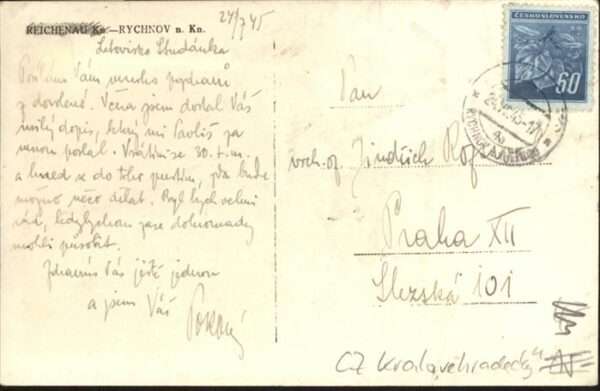 24/7 45
REICHENAU Kn.—RYCHNOV n. Kn.
Letovisko Studánka
Posílám Vám mnoho pozdravů
z dovolené. Včera jsem dostal Váš
milý dopis, který mi Pavliš za
mnou poslal. Vrátím se 30. t. m.
a hned se do toho pustím, pak bude
možno něco dělat. Byl bych velmi
rád, kdybychom zase dohromady
mohli působit.
Zdravím Vás ještě jednou
a jsem Váš
Pokorný
ČESKOSLOVENSKO
60
Pan
vrch. of. Jindřich
Praha XII
Slezská 101
CZ Královéhradecký